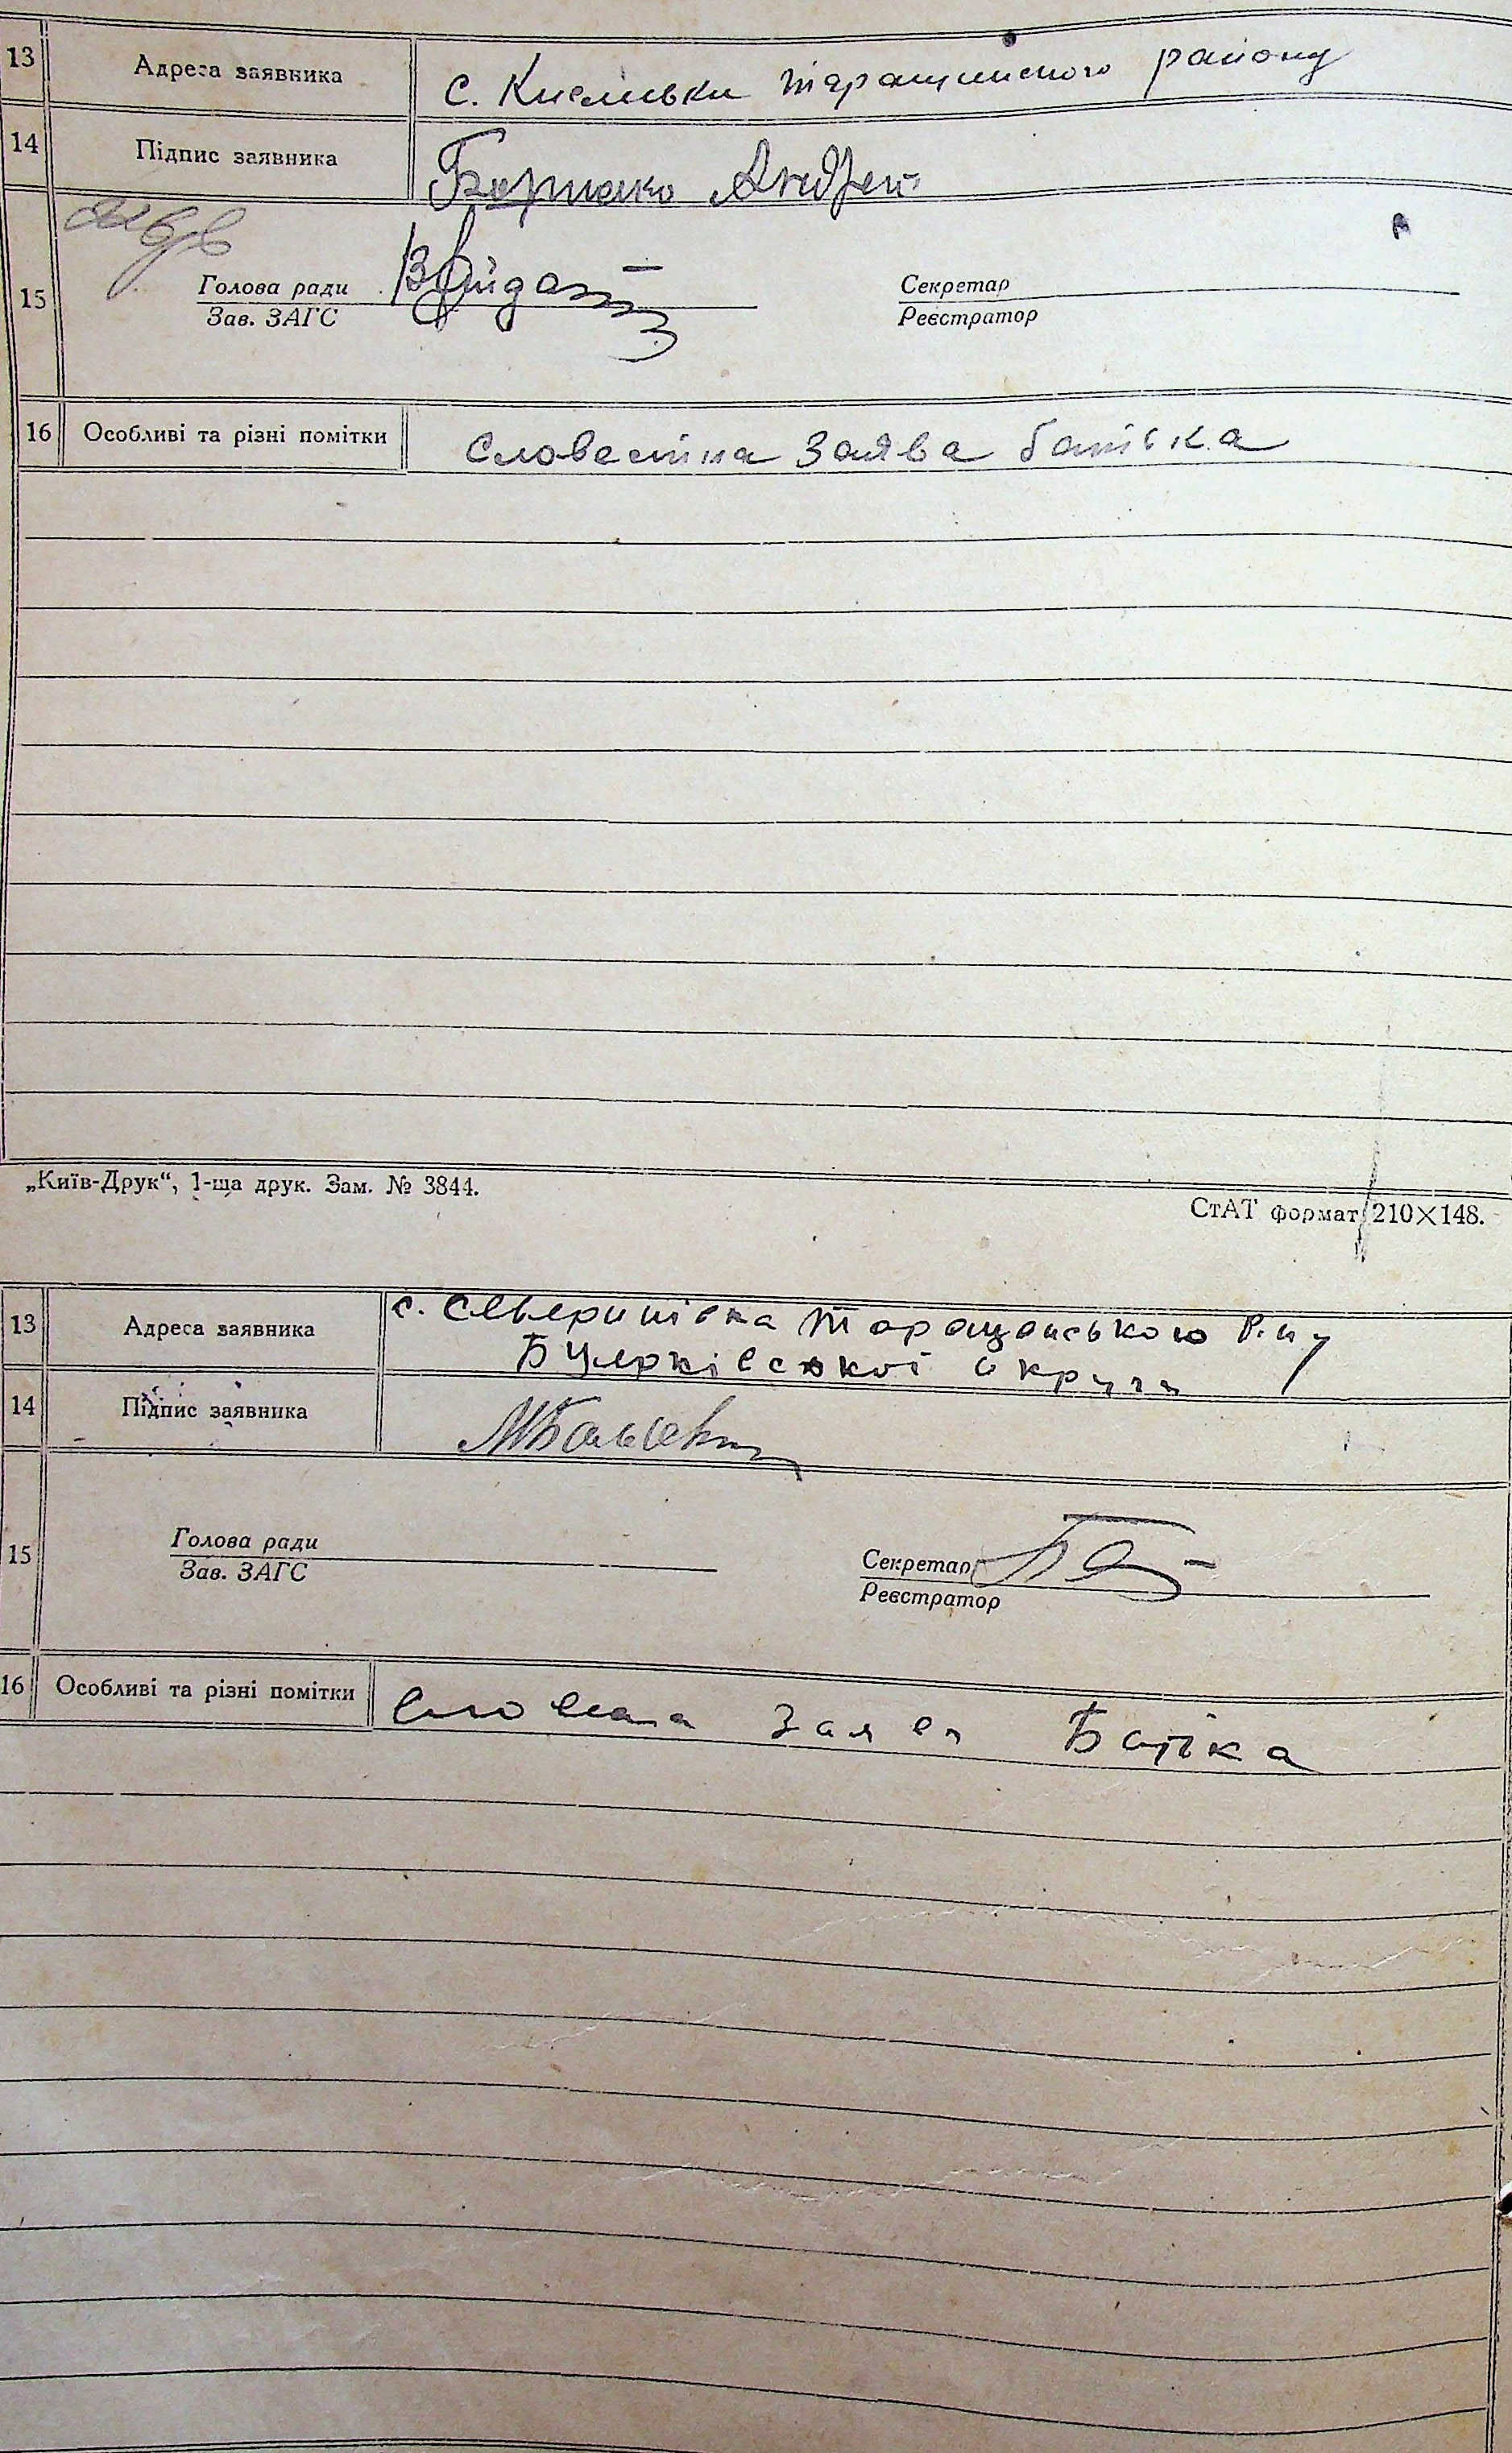 13 Адреса заявника с. Кислівка Таращанского району
14 Підпис заявника Андрей
15
Голова ради Секретар
Зав. ЗАГС Реєстратор
16 Особливі та різні помітки Словестна заява батька
„Київ-Друк“, 1-ша друк. Зам. № 3844.
СтАТ формат 210×148.
13 Адреса заявника с. Северинівка Таращанського р-ну
Бцерківської округи
14 Підпис заявника
15
Голова ради Секретар
Зав. ЗАГС Реєстратор
16 Особливі та різні помітки заява Батіка